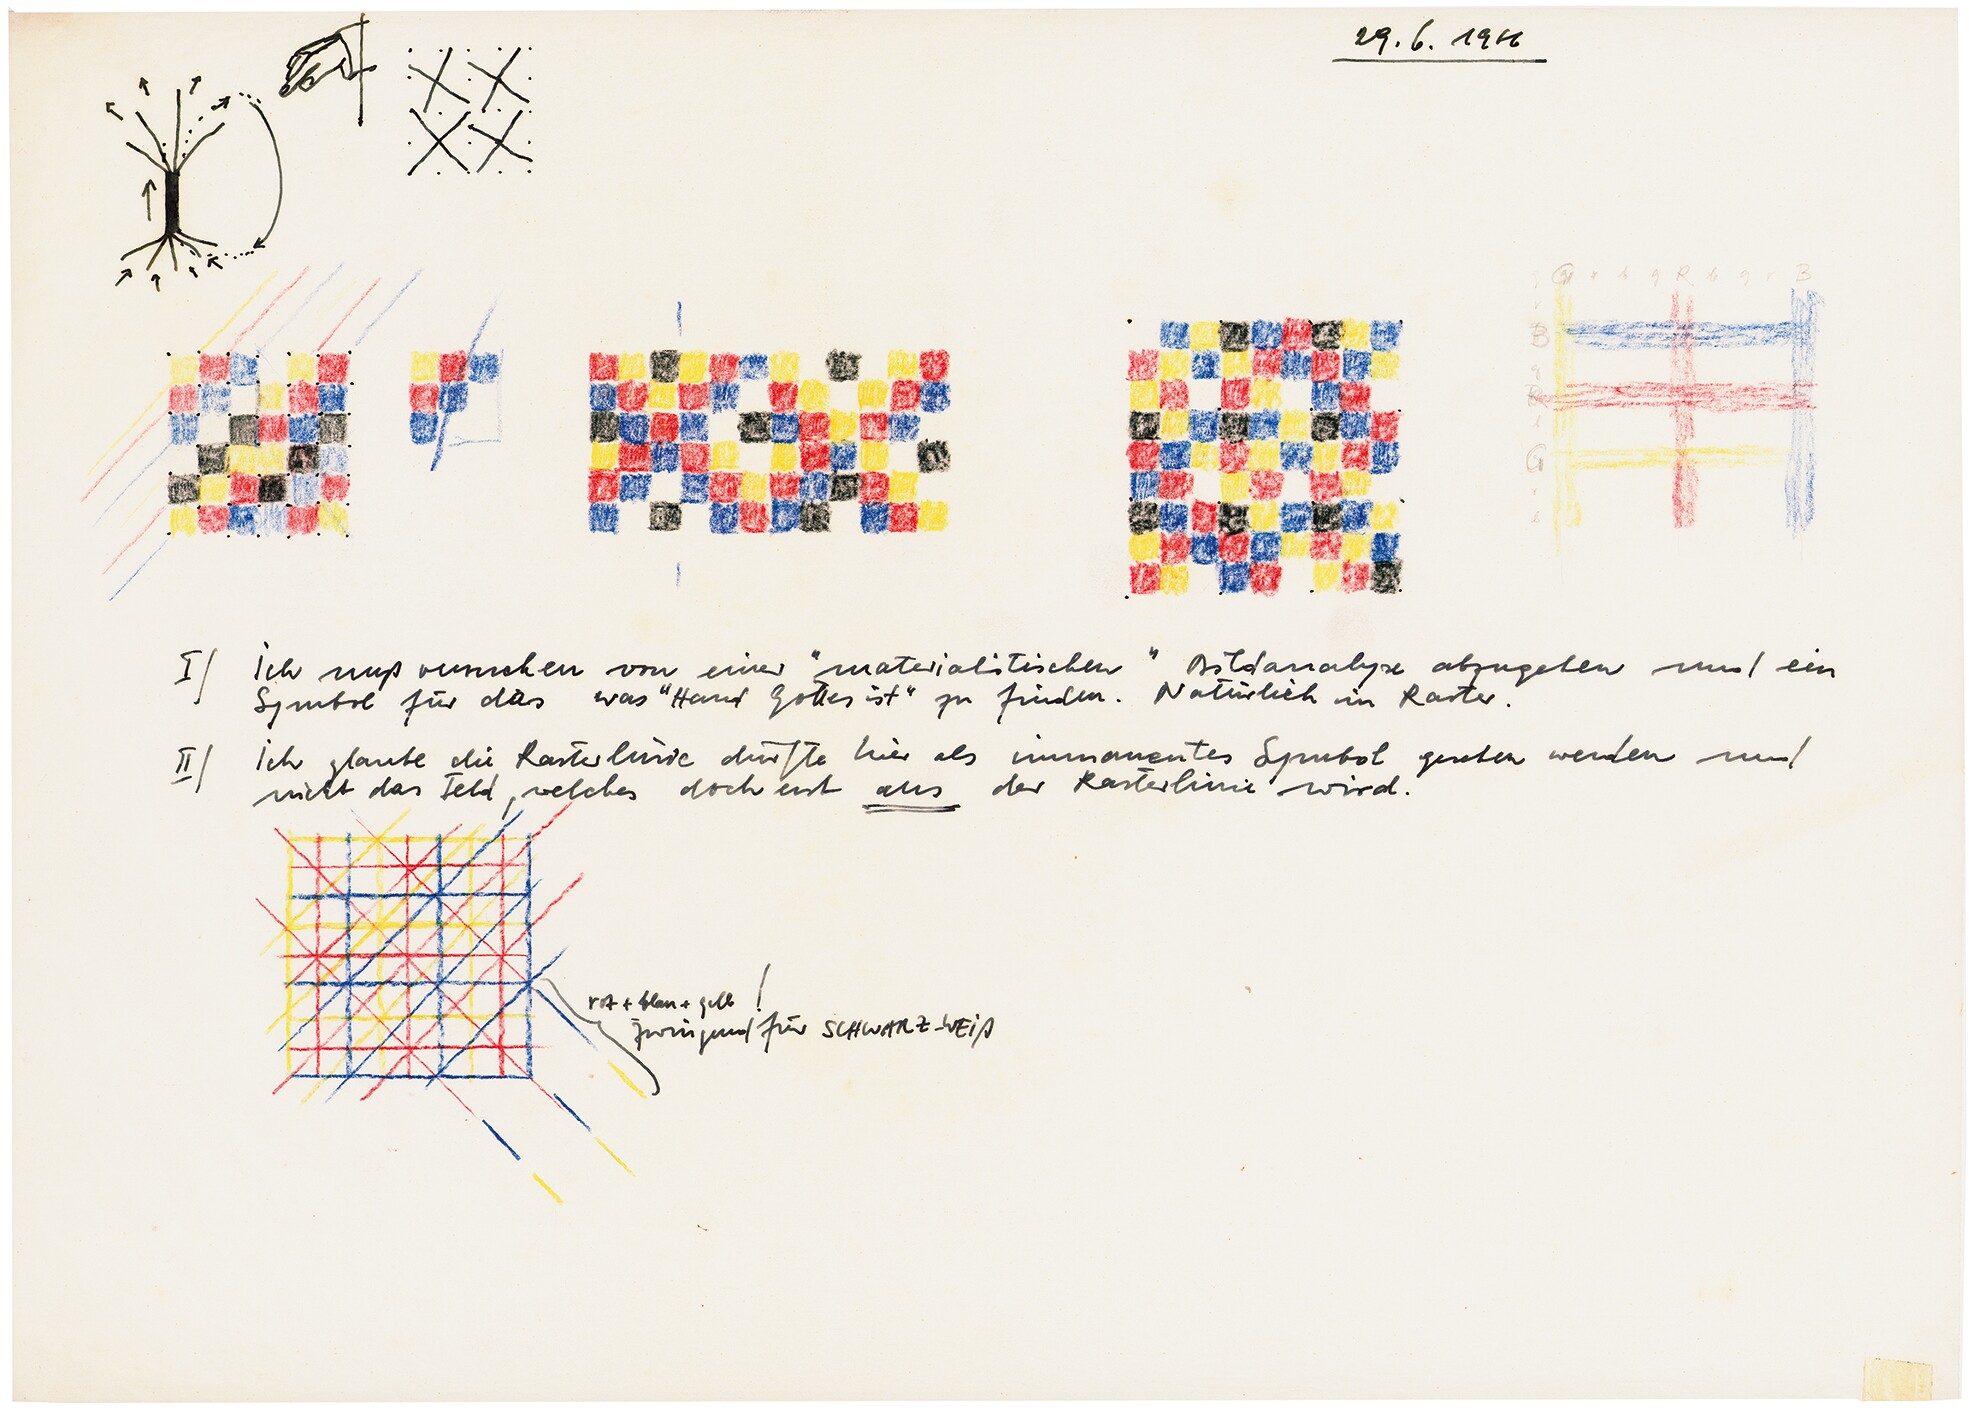 29.6.1966
G r b g R b g r B
B
g
R
b
G
r
b
I/ Ich muß versuchen von einer "materialistischen" Bildanalyse abzugehen und ein
Symbol für das was "Hand Gottes ist" zu finden. Natürlich im Raster.
II/ Ich glaube die Rasterlinie dürfte hier als immanentes Symbol gesehen werden und
nicht das Feld, welches doch erst aus der Rasterlinie wird.
rot + blau + gelb !
zwingend für SCHWARZ-WEIß